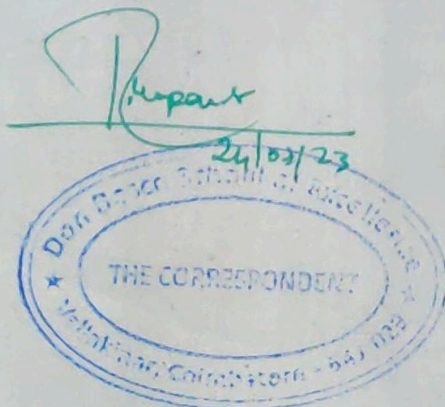 24/03/23
Don Bosco School of Excellence
THE CORRESPONDENT
Vellakinar, Coimbatore - 641 029